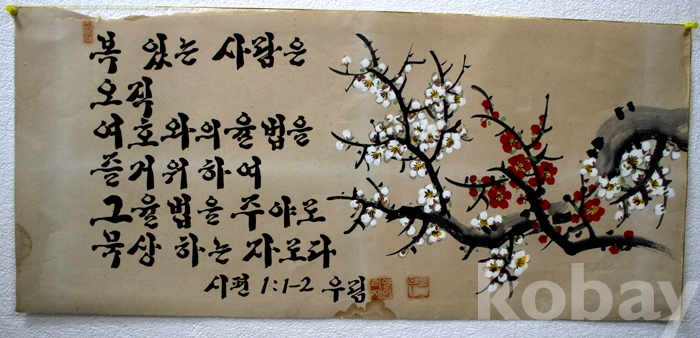 복 있는 사람은
오직
여호와의 율법을
즐거워 하여
그 율법을 주야로
묵상 하는 자로다
시편 1:1-2 우림
kobay